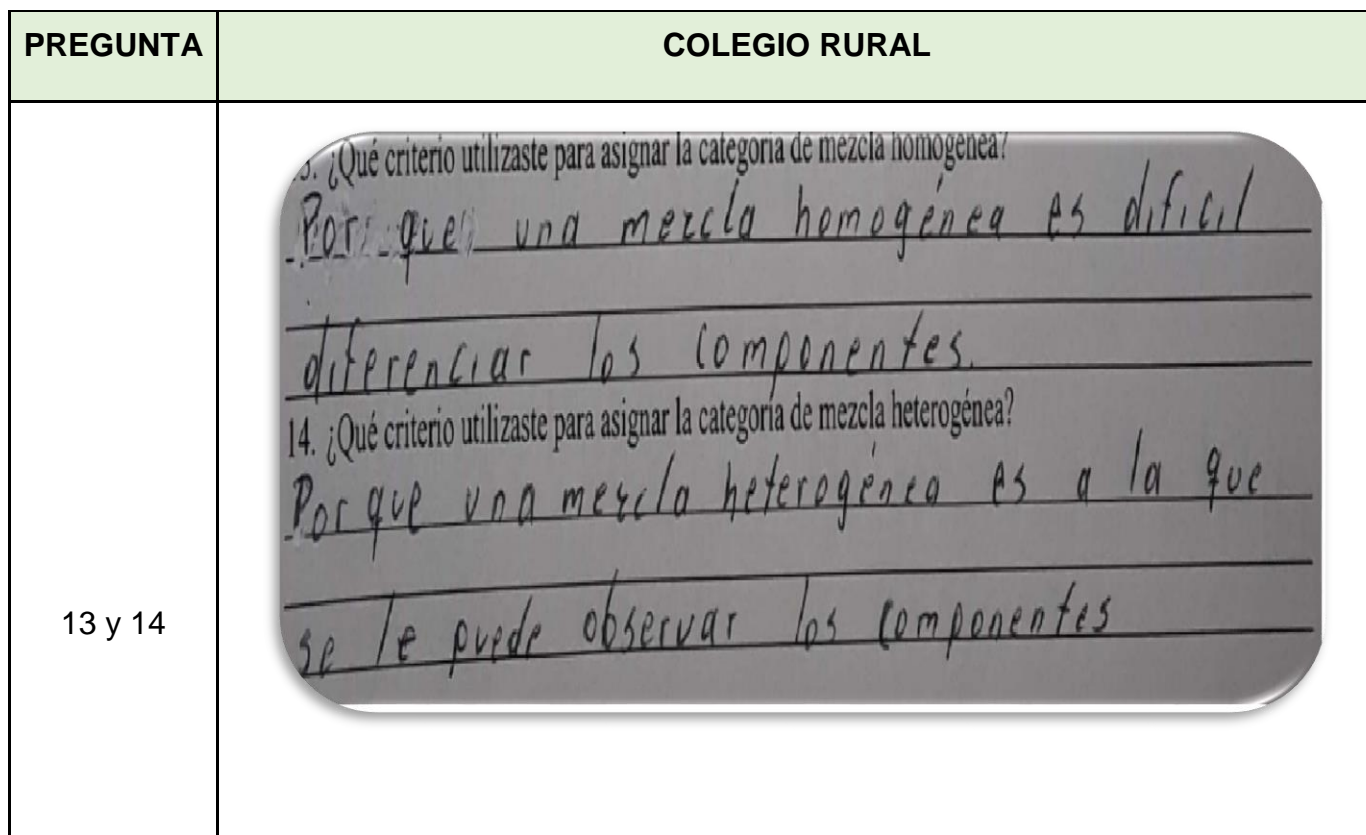 PREGUNTA
COLEGIO RURAL
3. ¿Qué criterio utilizaste para asignar la categoría de mezcla homogénea?
Por que una mezcla homogénea es dificil
diferenciar los componentes.
14. ¿Qué criterio utilizaste para asignar la categoría de mezcla heterogénea?
Por que una mezcla heterogénea es a la que
se le puede observar los componentes
13 y 14